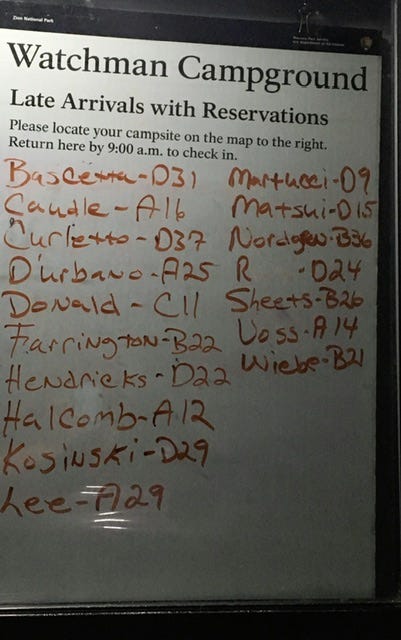 Zion National Park
Watchman Campground
Late Arrivals with Reservations
Please locate your campsite on the map to the right.
Return here by 9:00 a.m. to check in.
Bascetta-D31
Caudle-A16
Curletto-D37
D'urbano-A25
Donald-C11
Farrington-B22
Hendricks-D22
Halcomb-A12
Kosinski-D29
Lee-A29
Martucci-D9
Matsui-D15
B36
R -D24
Sheets-B26
Voss-A14
Wiebe-B21